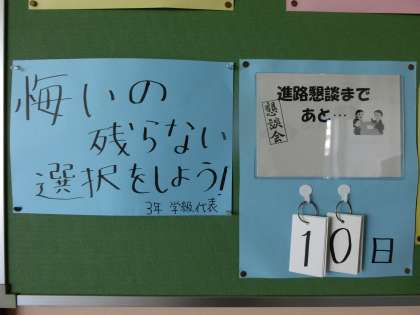 悔いの
残らない
選択をしよう!
3年 学級代表
進路懇談まで
あと…
懇談会
10日